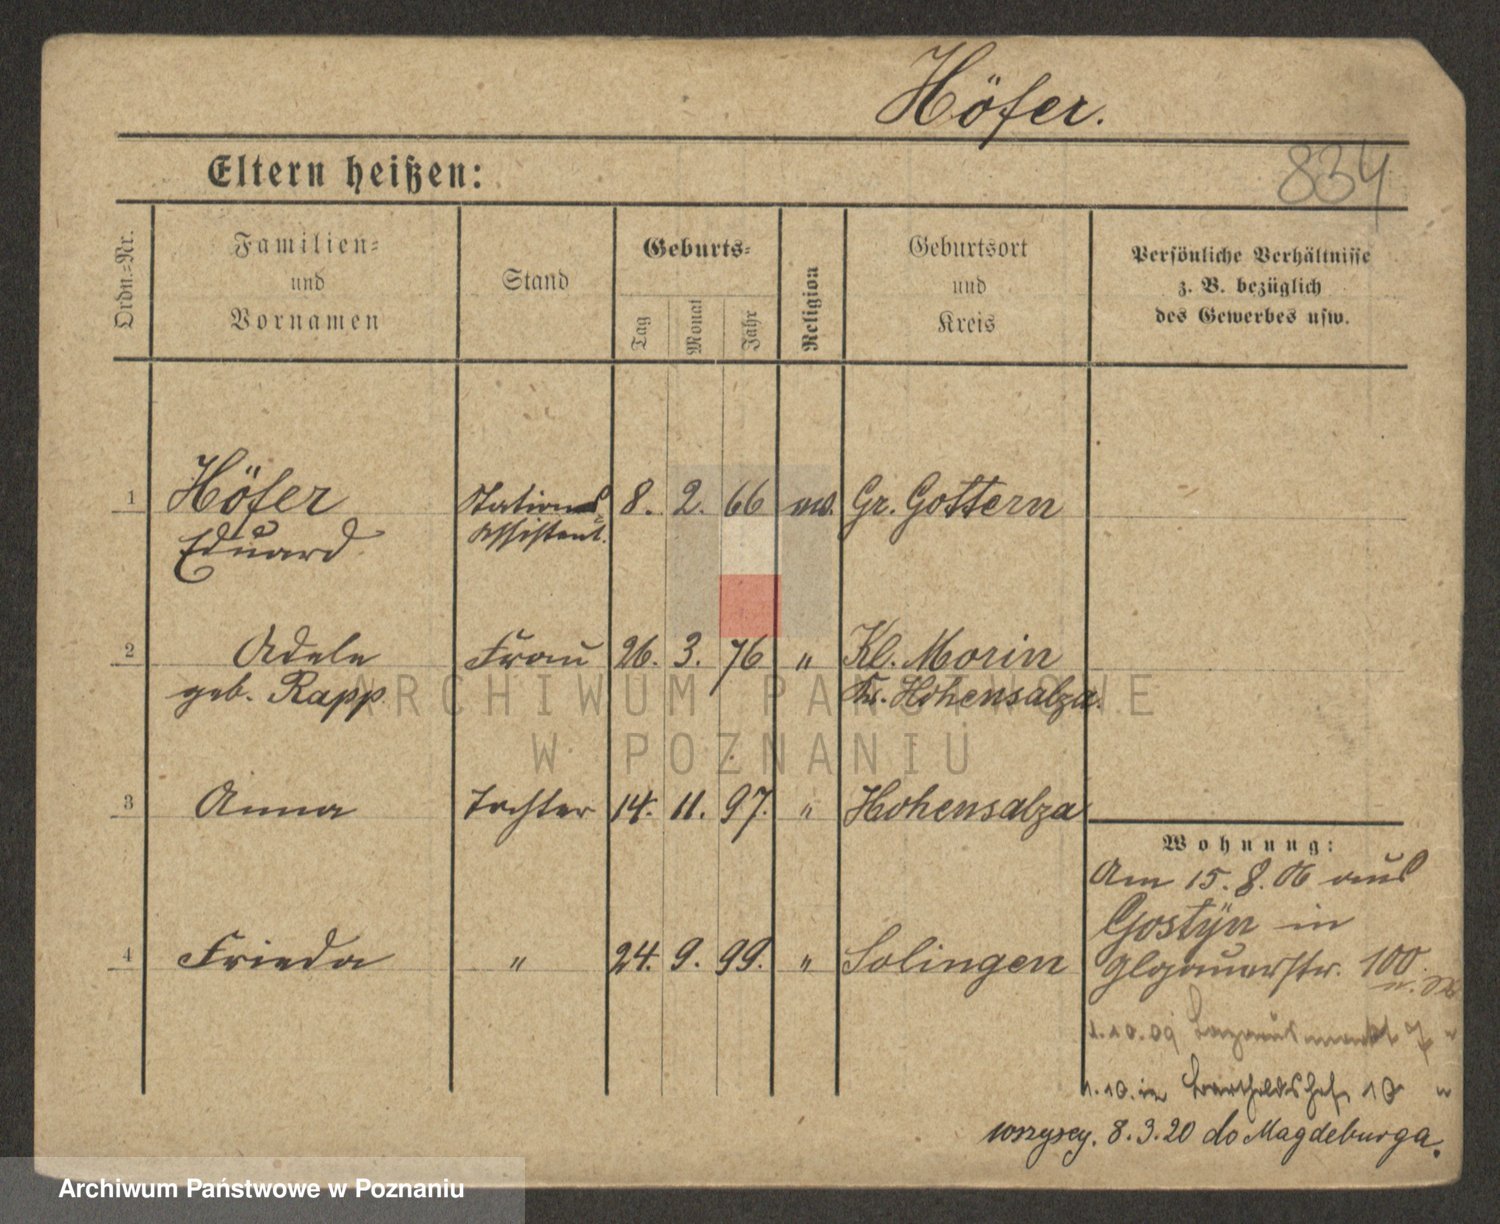 Höfer.
Eltern heißen:
834
Ordn.=Nr.
Familien=
und
Vornamen
Stand
Geburts=
Tag
Monat
Jahr
Religion
Geburtsort
und
Kreis
Persönliche Verhältnisse
z. B. bezüglich
des Gewerbes usw.
1 Höfer Stations= 8. 2. 66 ev. Gr. Gottern
Eduard Assistent.
2 Adele Frau 26. 3. 76 " Kl. Morin
geb. Rapp Kr. Hohensalza.
3 Anna Tochter 14. 11. 97. " Hohensalza
Wohnung:
Am 15. 8. 06 aus
Gostÿn in
4 Frieda " 24. 9. 99. " Solingen
Glogauerstr. 100
1.10.09 Lazarusmarkt
1.10. Bartholdshof
wszyscy. 8.3.20 do Magdeburga.
ARCHIWUM PAŃSTWOWE
W POZNANIU
Archiwum Państwowe w Poznaniu